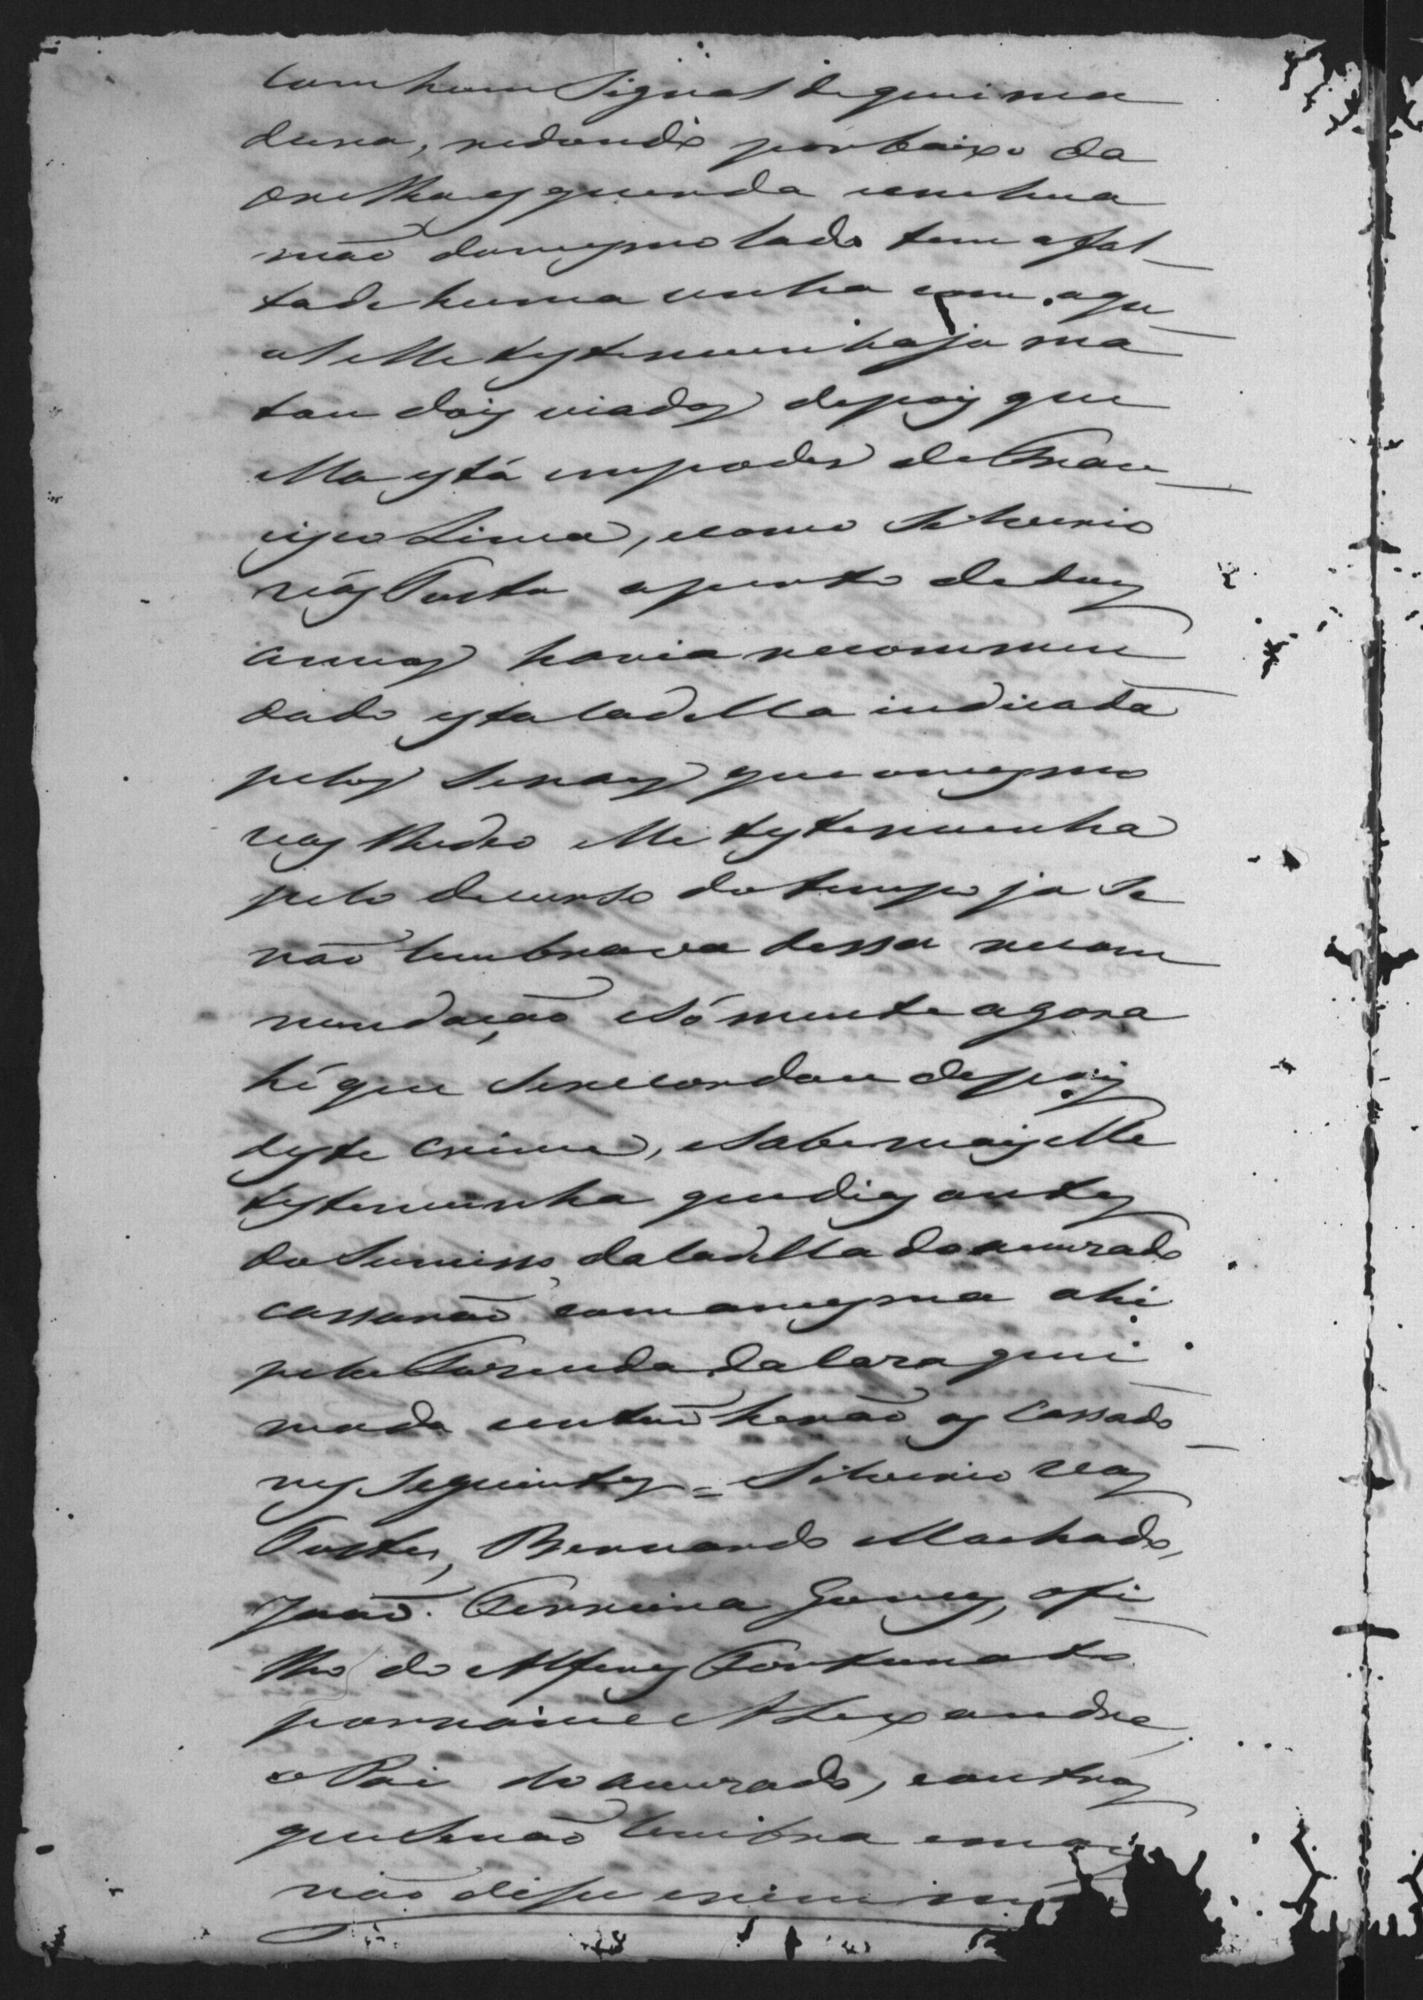 com hum Signal de queima
dura, redondo por baixo da
orelha esquerda e em hua
mão do mesmo lado tem a fal
ta de huma unha com, a qu
al elle testemunha ja ma
tou dois viados depois que
ella está em poder de Fran
cisco Lima, e como Silverio
Vás Tosta a perto de dois
annos havia recommen
dado esta Cadella indicada
pelos Sinaes que o mesmo
Vas lhe deo elle testemunha
pelo decurso do tempo ja Se
não lembrava dessa recom
mendação e Sómente agora
hé que Se recordou depois
deste crime, e Sabe mais elle
testemunha que dias antes
do Sumisso da Cadella do acuzado
cassarão com a mesma ahi
pela Fazenda da Cara quei
mada e então herão os Cassado
res Seguintes = Silverio Vas
Tostes, Bernardo Machado,
João Ferreira Gomes, o fi
lho do Alferes Fortunato
por nome Alexandre,
o Pai do acuzado, e outros
que Se não lembra e mais
não disse